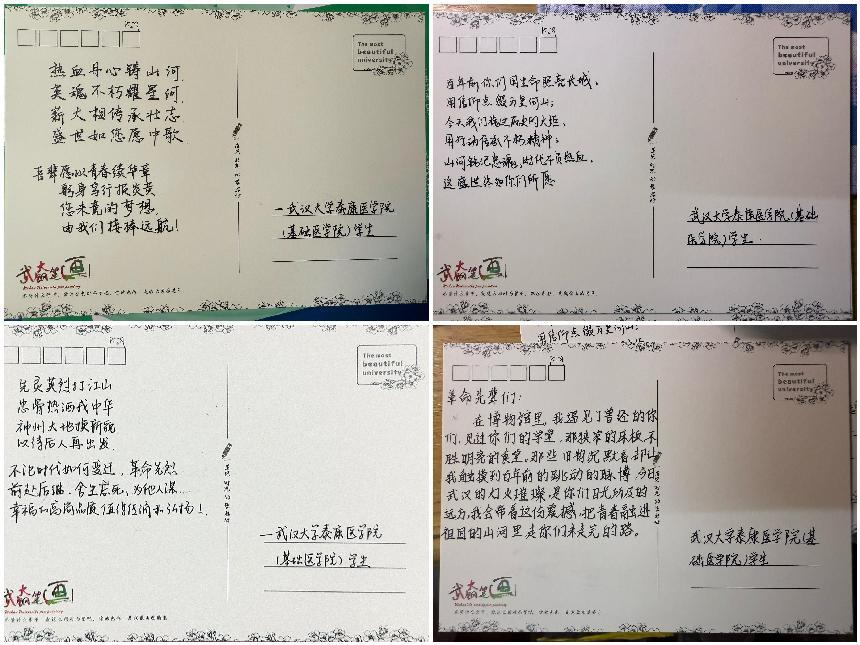 The most
beautiful
university
热血丹心铸山河
英魂不朽耀星河
薪火相传承壮志
盛世如您愿中歌
吾辈愿以青春续华章
躬身笃行报炎黄
您未竟的梦想
由我们接棒远航!
一武汉大学泰康医学院
(基础医学院)学生
武大铅笔画
The most
beautiful
university
百年前你们用生命照亮长城,
用信仰点缀万里河山;
今天我们接过历史的火炬,
用行动传承不朽精神;
山河铭记忠魂,时代不负热血,
这盛世终如你们所愿
武汉大学泰康医学院(基础
医学院)学生.
武大铅笔画
The most
beautiful
university
先辈英烈打江山
忠骨热洒我中华
神州大地换新貌
以待后人再出发
不论时代如何变迁,革命先烈
前赴后继、舍生忘死、为他人谋
幸福的高尚品质值得传诵和弘扬!
一武汉大学泰康医学院
(基础医学院)学生
武大铅笔画
用信仰点缀万里河山;
The most
beautiful
university
革命先辈们:
在博物馆里,我遇见了曾经的你
们,见过你们的学堂,那狭窄的床板,不
胜明亮的食堂。那些旧物沉默着,却让
我触摸到百年前的跳动的脉搏,今日
武汉的灯火璀璨,是你们目光所及的
远方,我会带着这份震撼,把青春融进
祖国的山河里走你们未走完的路。
武汉大学泰康医学院(基
础医学院)学生
武大铅笔画